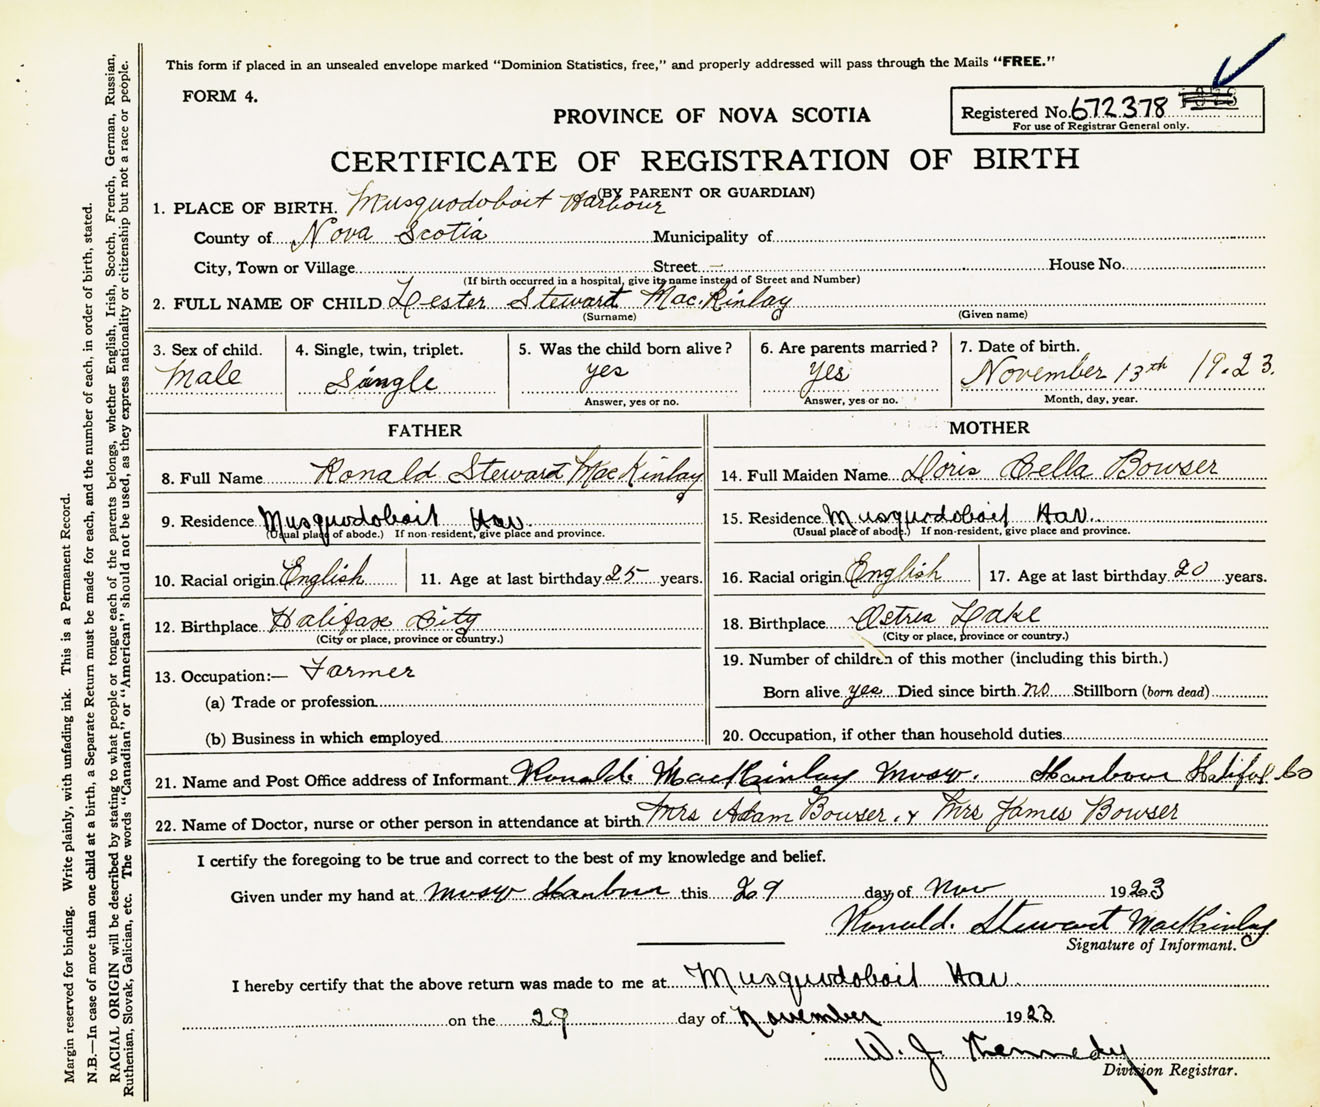 This form if placed in an unsealed envelope marked "Dominion Statistics, free," and properly addressed will pass through the Mails "FREE."
FORM 4.
PROVINCE OF NOVA SCOTIA
Registered No. 672378
For use of Registrar General only.
CERTIFICATE OF REGISTRATION OF BIRTH
(BY PARENT OR GUARDIAN)
1. PLACE OF BIRTH. Musquodoboit Harbour
County of Nova Scotia Municipality of
City, Town or Village Street – House No.
(If birth occurred in a hospital, give its name instead of Street and Number)
2. FULL NAME OF CHILD Lester Stewart MacKinlay
(Surname) (Given name)
3. Sex of child. 4. Single, twin, triplet. 5. Was the child born alive? 6. Are parents married? 7. Date of birth.
Male Single yes yes November 13th 1923.
Answer, yes or no. Answer, yes or no. Month, day, year.
FATHER MOTHER
8. Full Name Ronald Stewart MacKinlay 14. Full Maiden Name Doris Cella Bowser
9. Residence Musquodoboit Har. 15. Residence Musquodoboit Har.
(Usual place of abode.) If non-resident, give place and province. (Usual place of abode.) If non-resident, give place and province.
10. Racial origin English 11. Age at last birthday 25 years. 16. Racial origin English 17. Age at last birthday 20 years.
12. Birthplace Halifax City 18. Birthplace Ostrea Lake
(City or place, province or country.) (City or place, province or country.)
13. Occupation:— Farmer 19. Number of children of this mother (including this birth.)
(a) Trade or profession Born alive yes Died since birth no Stillborn (born dead)
(b) Business in which employed 20. Occupation, if other than household duties
21. Name and Post Office address of Informant Ronald MacKinlay Musq. Harbour Halifax Co
22. Name of Doctor, nurse or other person in attendance at birth Mrs Adam Bowser. & Mrs James Bowser
I certify the foregoing to be true and correct to the best of my knowledge and belief.
Given under my hand at Musq Harbour this 29 day of Nov 1923
Ronald. Stewart MacKinlay
Signature of Informant.
I hereby certify that the above return was made to me at Musquodoboit Har.
on the 29 day of November 1923
W. J. Kennedy
Division Registrar.
Margin reserved for binding. Write plainly, with unfading ink. This is a Permanent Record.
N.B.—In case of more than one child at a birth, a Separate Return must be made for each, and the number of each, in order of birth, stated.
RACIAL ORIGIN will be described by stating to what people or tongue each of the parents belongs, whether English, Irish, Scotch, French, German, Russian,
Ruthenian, Slovak, Galician, etc. The words "Canadian" or "American" should not be used, as they express nationality or citizenship but not a race or people.